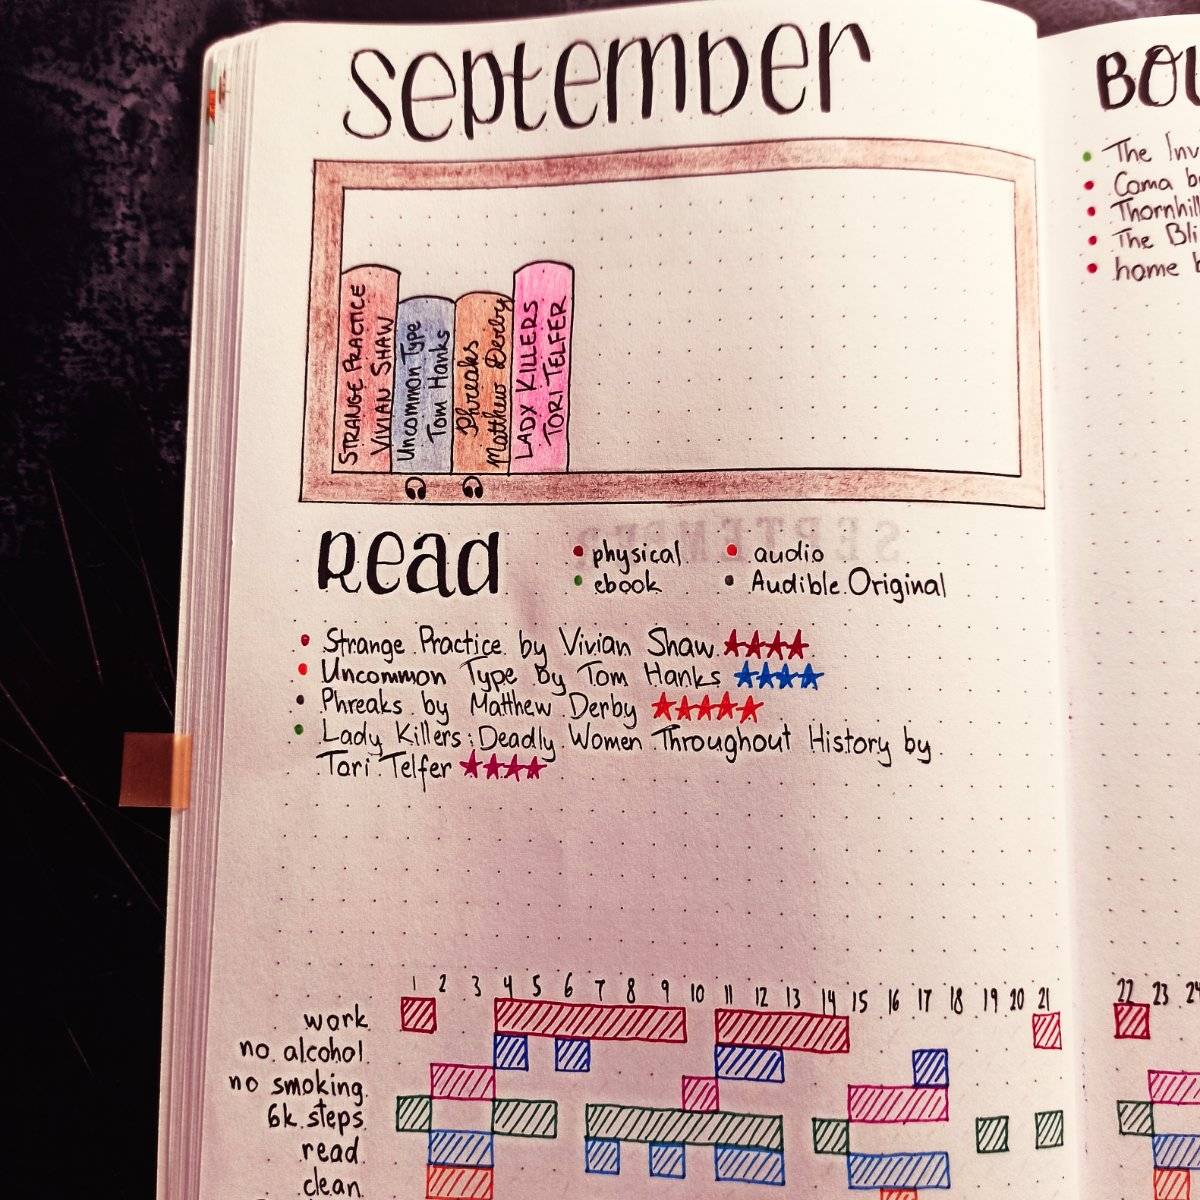 September
STRANGE PRACTICE
VIVIAN SHAW
Uncommon Type
Tom Hanks
Phreaks
Matthew Derby
LADY KILLERS
TORI TELFER
Read
physical
audio
ebook
Audible Original
Strange Practice by Vivian Shaw
Uncommon Type By Tom Hanks
Phreaks by Matthew Derby
Lady Killers: Deadly Women Throughout History by
Tori Telfer
1 2 3 4 5 6 7 8 9 10 11 12 13 14 15 16 17 18 19 20 21
work
no alcohol
no smoking
6k steps
read
clean
BOU
The Inv
Coma b
Thornhill
The Bli
home b
22 23 24